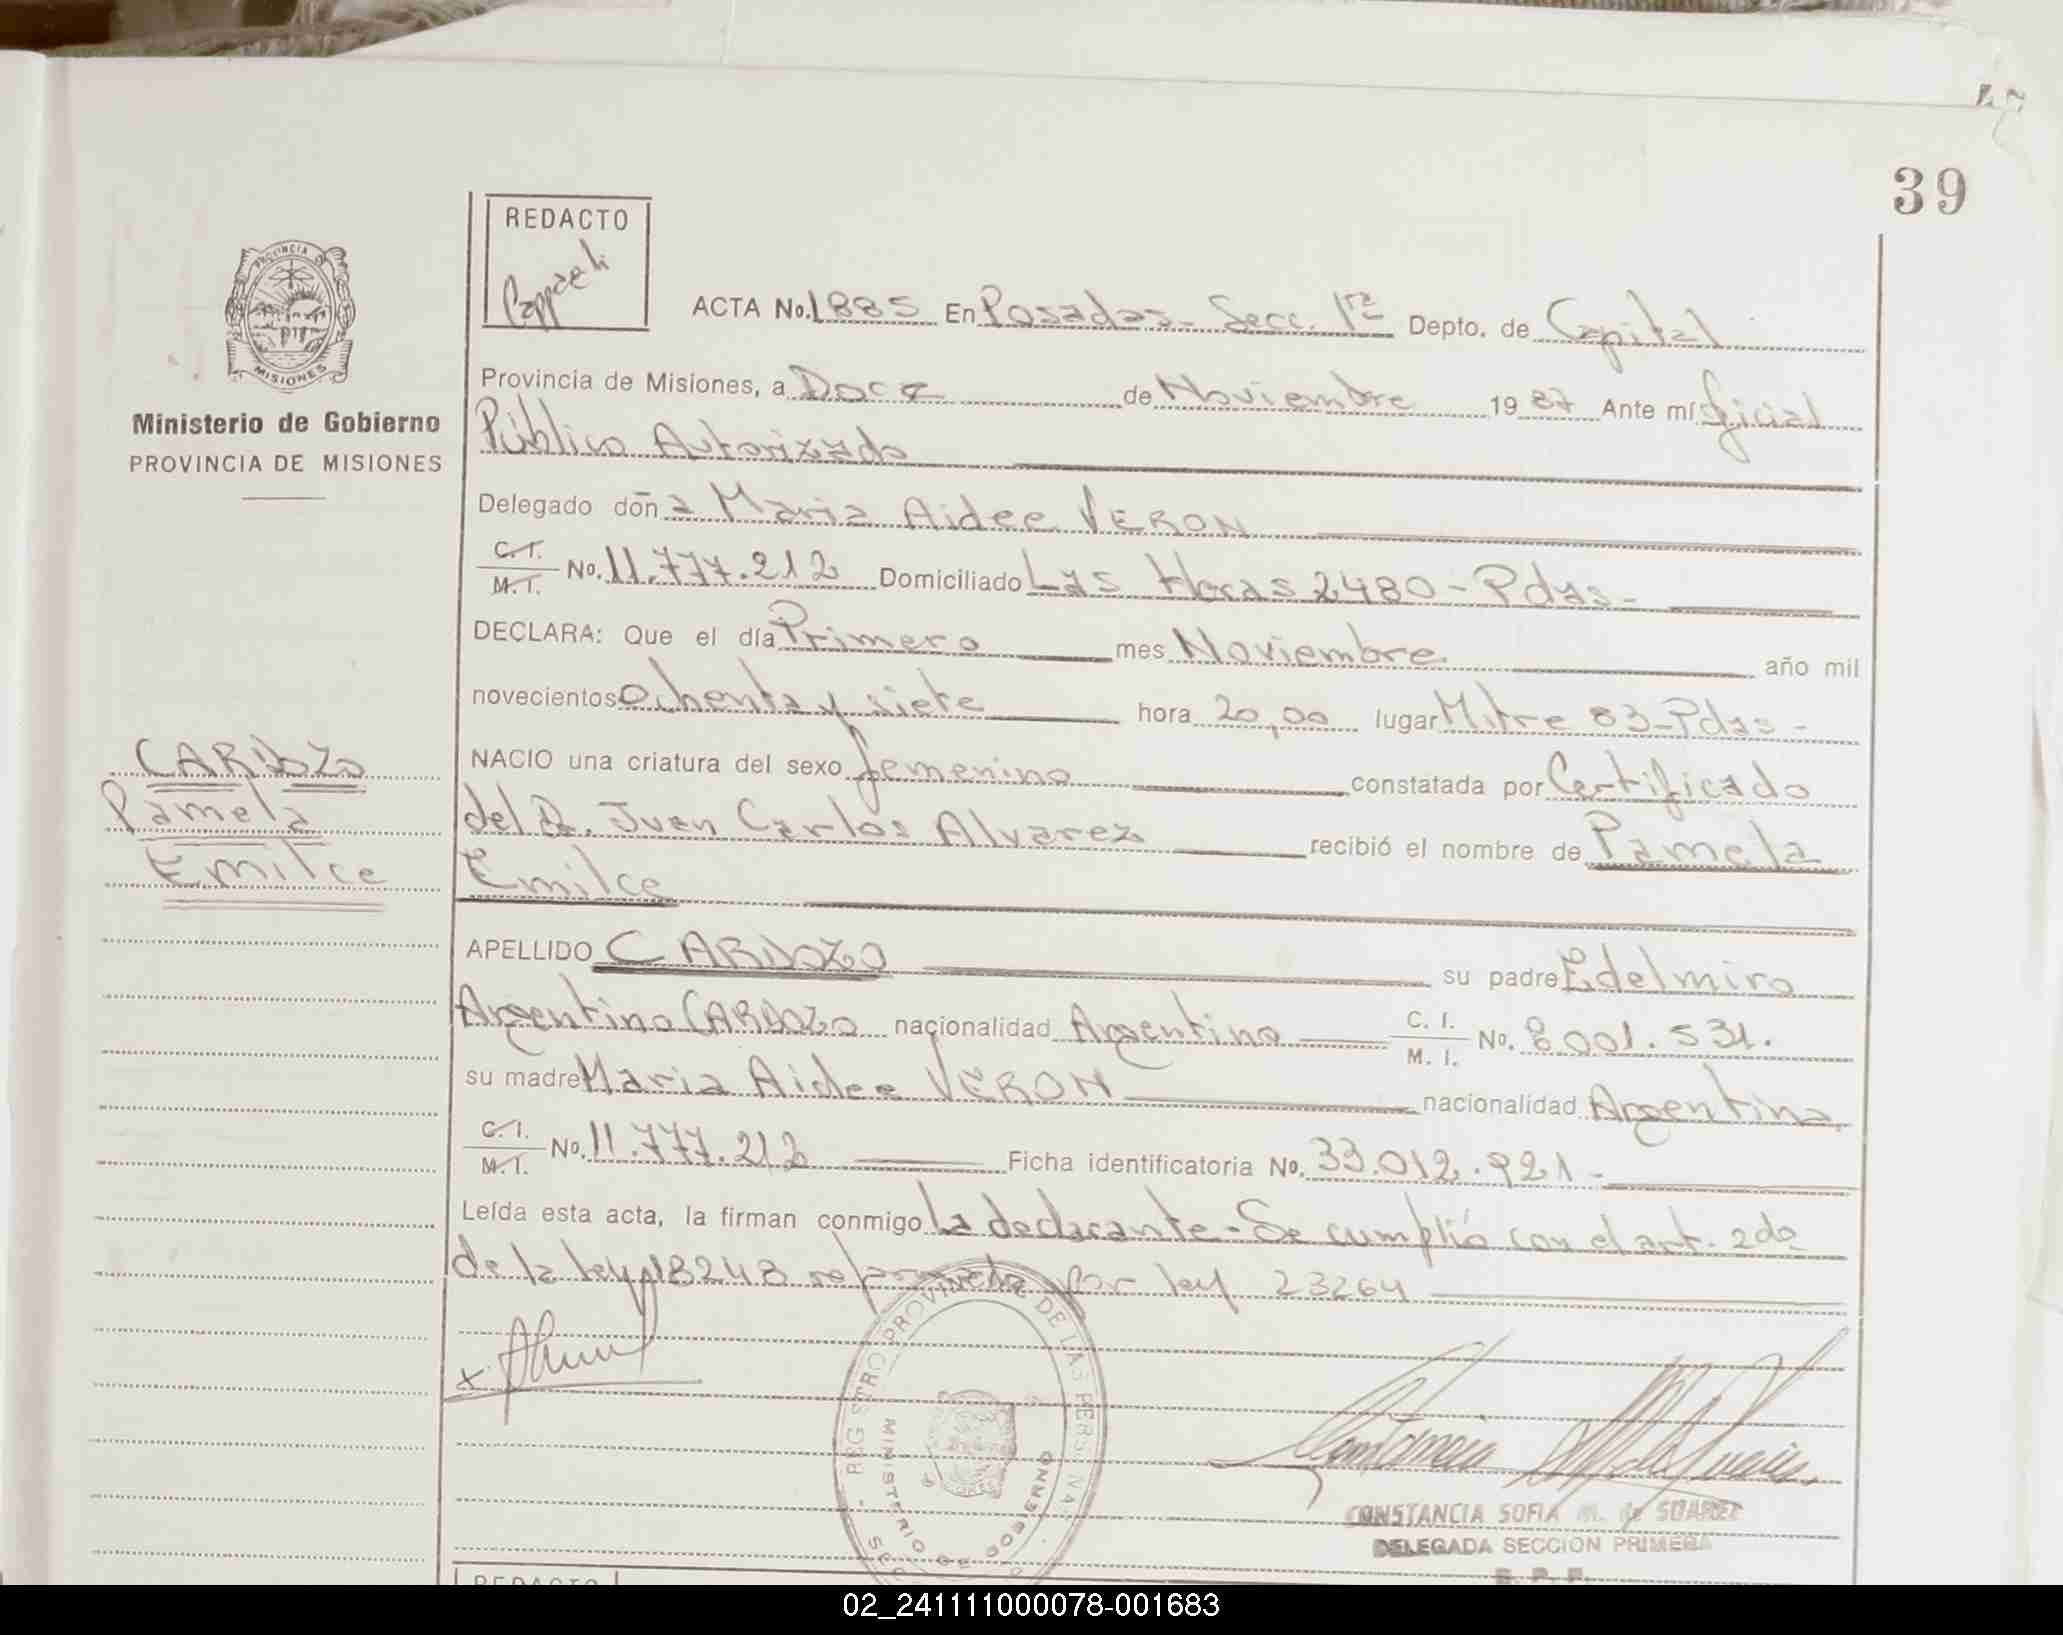 39
REDACTO
PROVINCIA
MISIONES
Ministerio de Gobierno
PROVINCIA DE MISIONES
ACTA No. 1885 En Posadas - Secc. 1ra Depto. de Capital
Provincia de Misiones, a Doce de Noviembre 1987 Ante mí oficial
Público Autorizado
Delegado doña Maria Aidee VERON
C.I. M.I. No. 11.777.212 Domiciliado Las Heras 2480 - Pdas -
DECLARA: Que el día Primero mes Noviembre año mil
novecientos ochenta y siete hora 20,00 lugar Mitre 83 - Pdas -
NACIO una criatura del sexo femenino constatada por Certificado
del Dr. Juan Carlos Alvarez recibió el nombre de Pamela
Emilce
CARDOZO
Pamela
Emilce
APELLIDO CARDOZO su padre Edelmiro
Argentino CARDOZO nacionalidad Argentino C. I. M. I. No. 8001.531.
su madre Maria Aidee VERON nacionalidad Argentina
C.I. M.I. No. 11.777.212 Ficha identificatoria No. 33.012.921 -
Leída esta acta, la firman conmigo la declarante - Se cumplió con el art. 2do
de la ley 18248 reformada por ley 23264
REGISTRO PROVINCIAL DE LAS PERSONAS
MINISTERIO DE GOBIERNO
CONSTANCIA SOFIA M. de SUAREZ
DELEGADA SECCION PRIMERA
R. P. P.
REDACTO
02_241111000078-001683